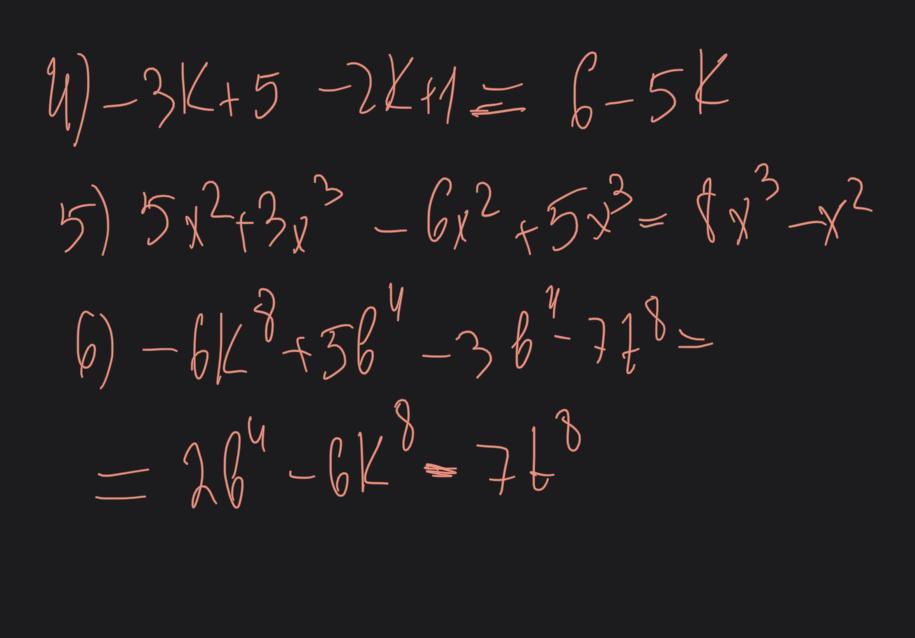 4) -3k+5 -2k+1 = 6-5k
5) 5x²+3x³ -6x² +5x³ = 8x³ -x²
6) -6k⁸ +5b⁴ -3b⁴ -7t⁸ =
= 2b⁴ -6k⁸ - 7t⁸